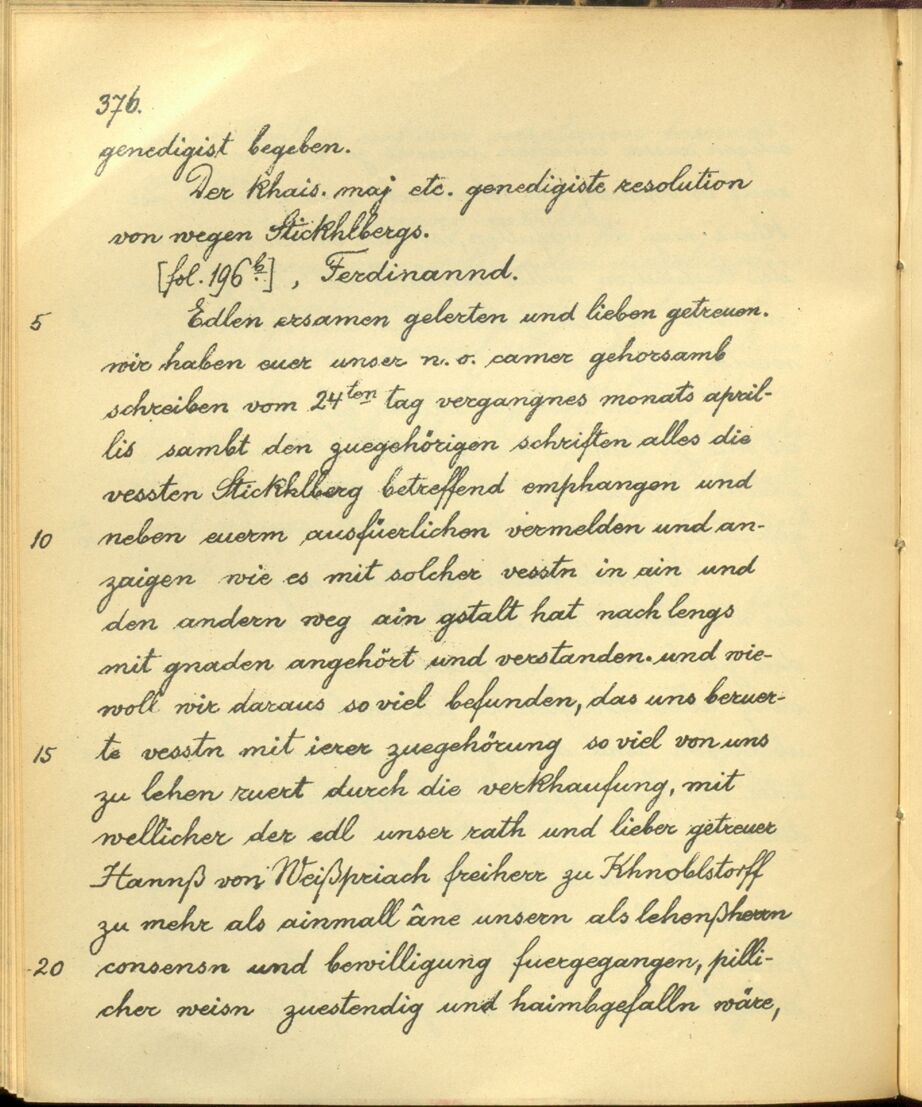 376.
genedigist begeben.
Der khais. maj etc. genedigiste resolution
von wegen Stickhlbergs.
[fol. 196 b.], Ferdinannd.
5 Edlen ersamen gelerten und lieben getreuen.
wir haben euer unser n. o. camer gehorsamb
schreiben vom 24ten tag vergangnes monats april-
lis sambt den zuegehörigen schriften alles die
vessten Stickhlberg betreffend emphangen und
10 neben euerm ausfüerlichen vermelden und an-
zaigen wie es mit solcher vesstn in ain und
den andern weg ain gstalt hat nach lengs
mit gnaden angehört und verstanden. und wie-
woll wir daraus so viel befunden, das uns beruer-
15 te vesstn mit ierer zuegehörung so viel von uns
zu lehen ruert durch die verkhaufung, mit
wellicher der edl unser rath und lieber getreuer
Hannß von Weißpriach freiherr zu Khnoblstorff
zu mehr als ainmall âne unsern als lehenßherrn
20 consensn und bewilligung fuergegangen, pilli-
cher weisn zuestendig und haimbgefalln wäre,